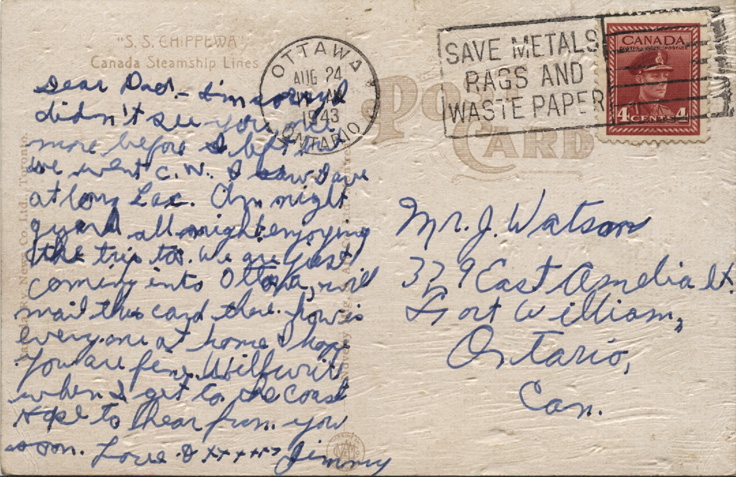 "S. S. CHIPPEWA"
Canada Steamship Lines
OTTAWA
AUG 24
1943
ONTARIO
SAVE METALS
RAGS AND
WASTE PAPER
CANADA
4 CENTS 4
POST
CARD
Dear Dad - I'm sorry I
didn't see you any
more before I left but
we went C.N. I saw Dave
at Long Lac. Am night
guard all night enjoying
the trip to. We are just
coming into Ottawa, will
mail this card there. how is
everyone at home I hope
you are fine. Will write
when I get to the coast
Hope to hear from you
soon. Love & xxxxx Jimmy
Mr. J. Watson
329 East Amelia St.
Fort William,
Ontario,
Can.
News Co. Ltd., Toronto.